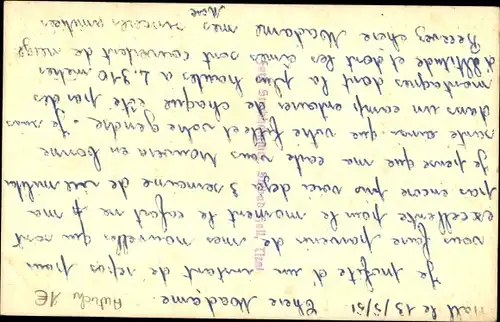 Hall le 13/5/51
1€
Chere Madame.
Je profite d'un instant de repos pour
vous faire parvenir de mes nouvelles qui sont
excellente pour le moment le cafard ne ma
pas encore pris voici deja 3 semaine de vie
Je pense que ma carte vous trouvera en bonne
sante ainsi que votre fille et votre gendre. Je suis
dans un camp entourer de chaque côté par des
montagnes dont la plus hautes a 2.310 mètres
d'altitude et dont les cimes sont couvertent de neige
Recevez chere Madame mes sinceres amitiés
Hall, Tirol